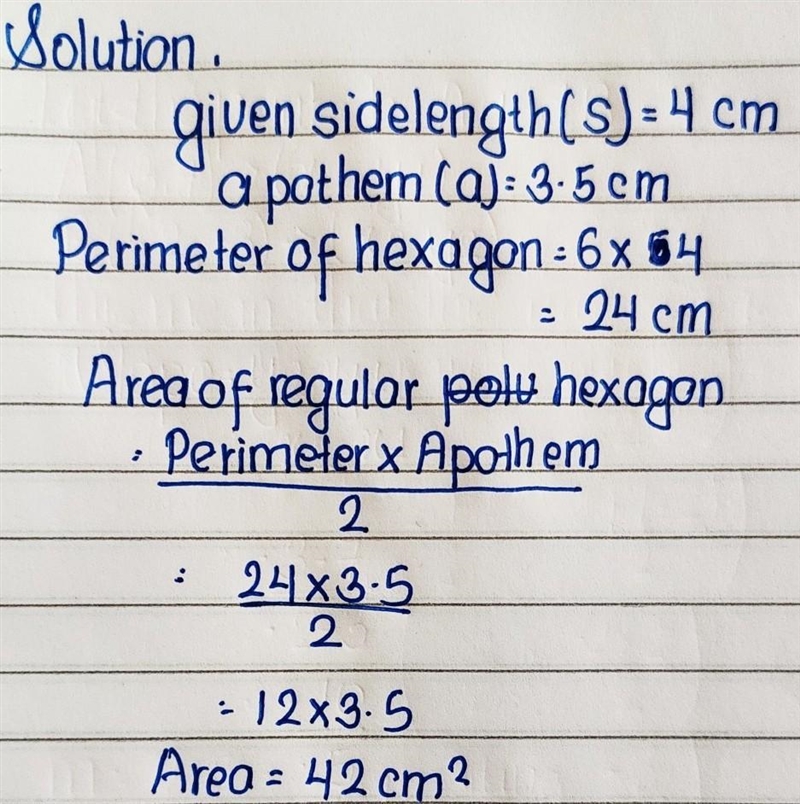 Solution.
given sidelength(s)=4 cm
apothem (a)=3.5cm
Perimeter of hexagon=6x 4
= 24 cm
Area of regular polu hexagon
= Perimeter x Apothem
2
= 24x3.5
2
=12x3.5
Area = 42cm²